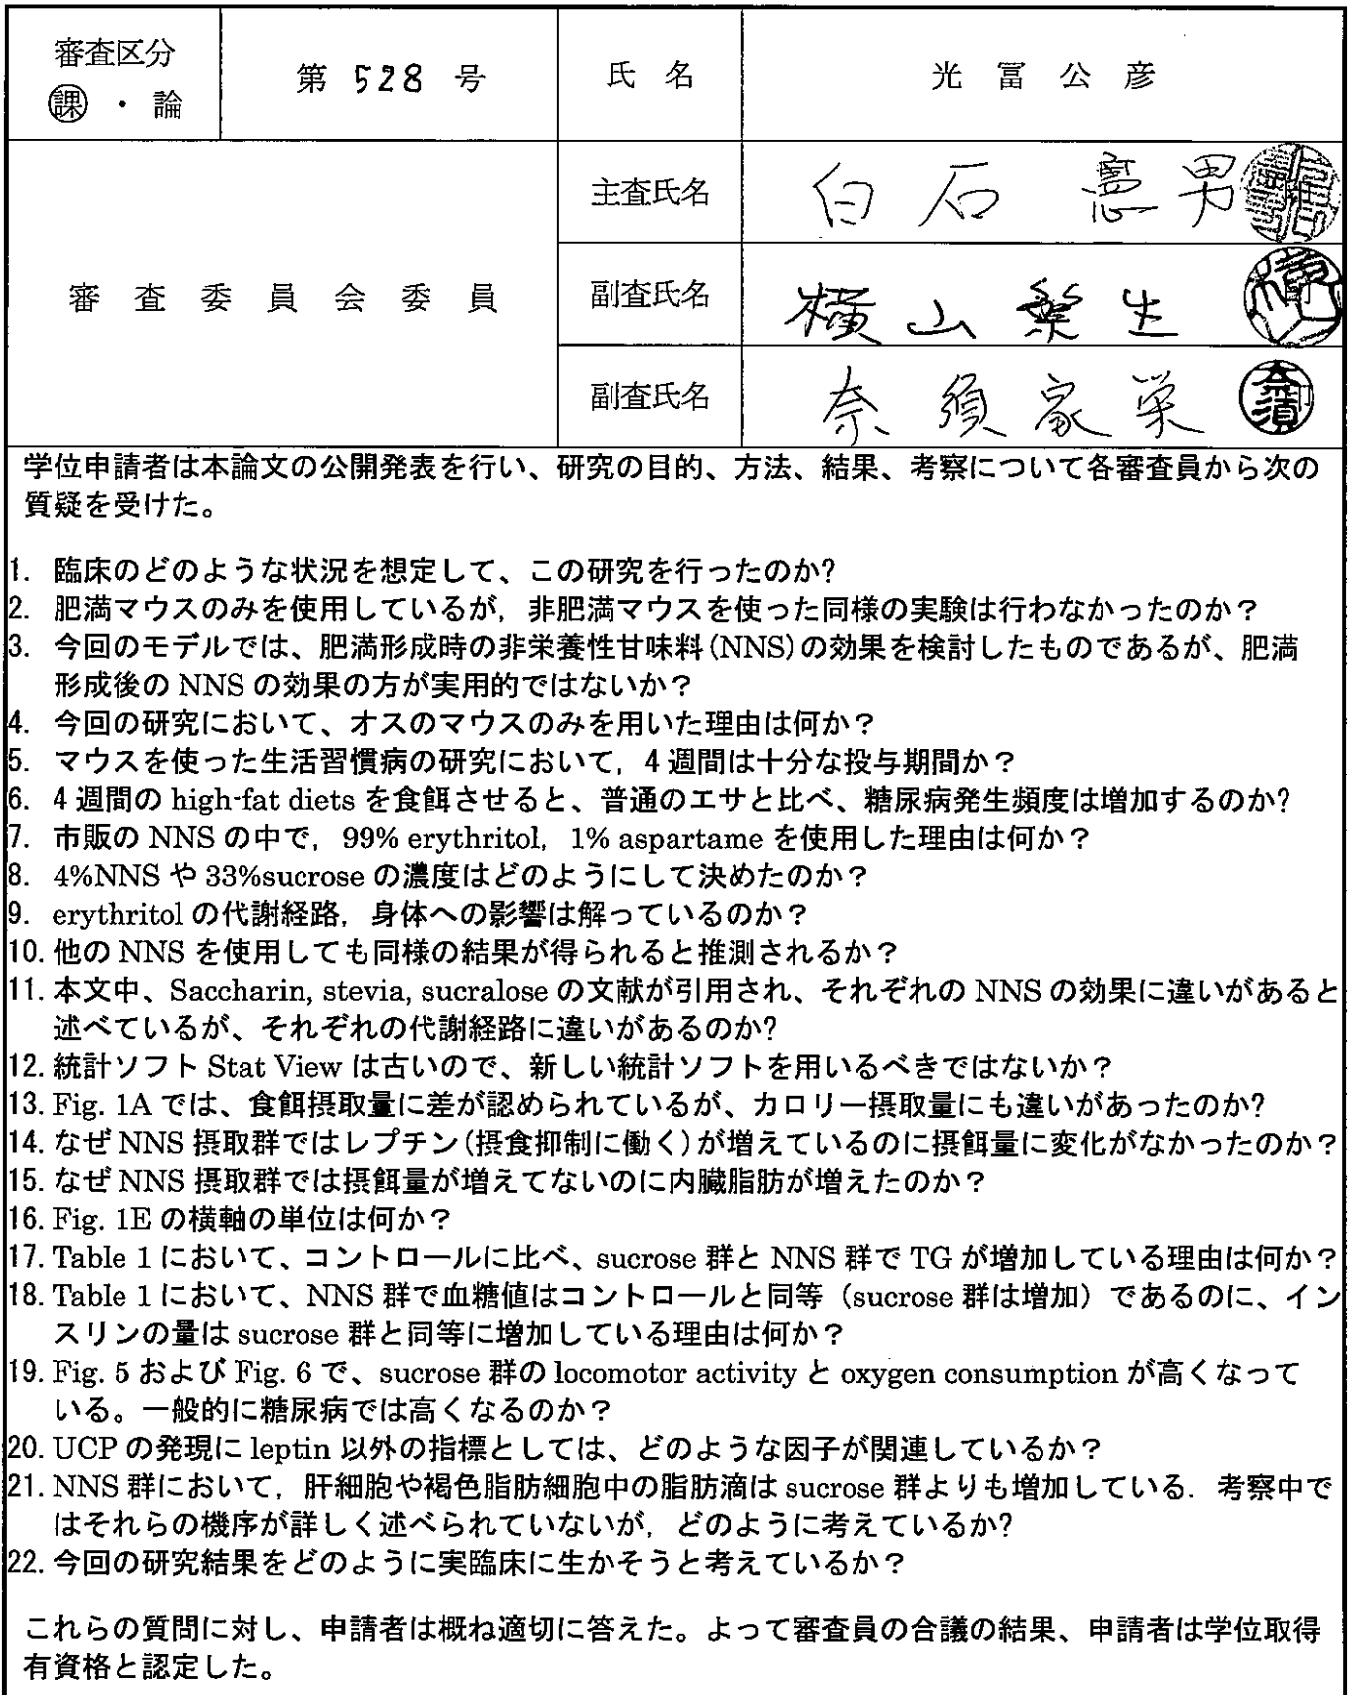 審査区分
課・論
第 528 号
氏 名
光 冨 公 彦
審 査 委 員 会 委 員
主査氏名
白石 憲男
副査氏名
横山繁生
副査氏名
奈須家栄
学位申請者は本論文の公開発表を行い、研究の目的、方法、結果、考察について各審査員から次の
質疑を受けた。
1. 臨床のどのような状況を想定して、この研究を行ったのか?
2. 肥満マウスのみを使用しているが，非肥満マウスを使った同様の実験は行わなかったのか？
3. 今回のモデルでは、肥満形成時の非栄養性甘味料(NNS)の効果を検討したものであるが、肥満
形成後の NNS の効果の方が実用的ではないか？
4. 今回の研究において、オスのマウスのみを用いた理由は何か？
5. マウスを使った生活習慣病の研究において，4 週間は十分な投与期間か？
6. 4 週間の high-fat diets を食餌させると、普通のエサと比べ、糖尿病発生頻度は増加するのか?
7. 市販の NNS の中で，99% erythritol，1% aspartame を使用した理由は何か？
8. 4%NNS や 33%sucrose の濃度はどのようにして決めたのか？
9. erythritol の代謝経路，身体への影響は解っているのか？
10. 他の NNS を使用しても同様の結果が得られると推測されるか？
11. 本文中、Saccharin, stevia, sucralose の文献が引用され、それぞれの NNS の効果に違いがあると
述べているが、それぞれの代謝経路に違いがあるのか?
12. 統計ソフト Stat View は古いので、新しい統計ソフトを用いるべきではないか？
13. Fig. 1A では、食餌摂取量に差が認められているが、カロリー摂取量にも違いがあったのか?
14. なぜ NNS 摂取群ではレプチン(摂食抑制に働く)が増えているのに摂餌量に変化がなかったのか？
15. なぜ NNS 摂取群では摂餌量が増えてないのに内臓脂肪が増えたのか？
16. Fig. 1E の横軸の単位は何か？
17. Table 1 において、コントロールに比べ、sucrose 群と NNS 群で TG が増加している理由は何か？
18. Table 1 において、NNS 群で血糖値はコントロールと同等（sucrose 群は増加）であるのに、イン
スリンの量は sucrose 群と同等に増加している理由は何か？
19. Fig. 5 および Fig. 6 で、sucrose 群の locomotor activity と oxygen consumption が高くなって
いる。一般的に糖尿病では高くなるのか？
20. UCP の発現に leptin 以外の指標としては、どのような因子が関連しているか？
21. NNS 群において，肝細胞や褐色脂肪細胞中の脂肪滴は sucrose 群よりも増加している．考察中で
はそれらの機序が詳しく述べられていないが，どのように考えているか?
22. 今回の研究結果をどのように実臨床に生かそうと考えているか？
これらの質問に対し、申請者は概ね適切に答えた。よって審査員の合議の結果、申請者は学位取得
有資格と認定した。